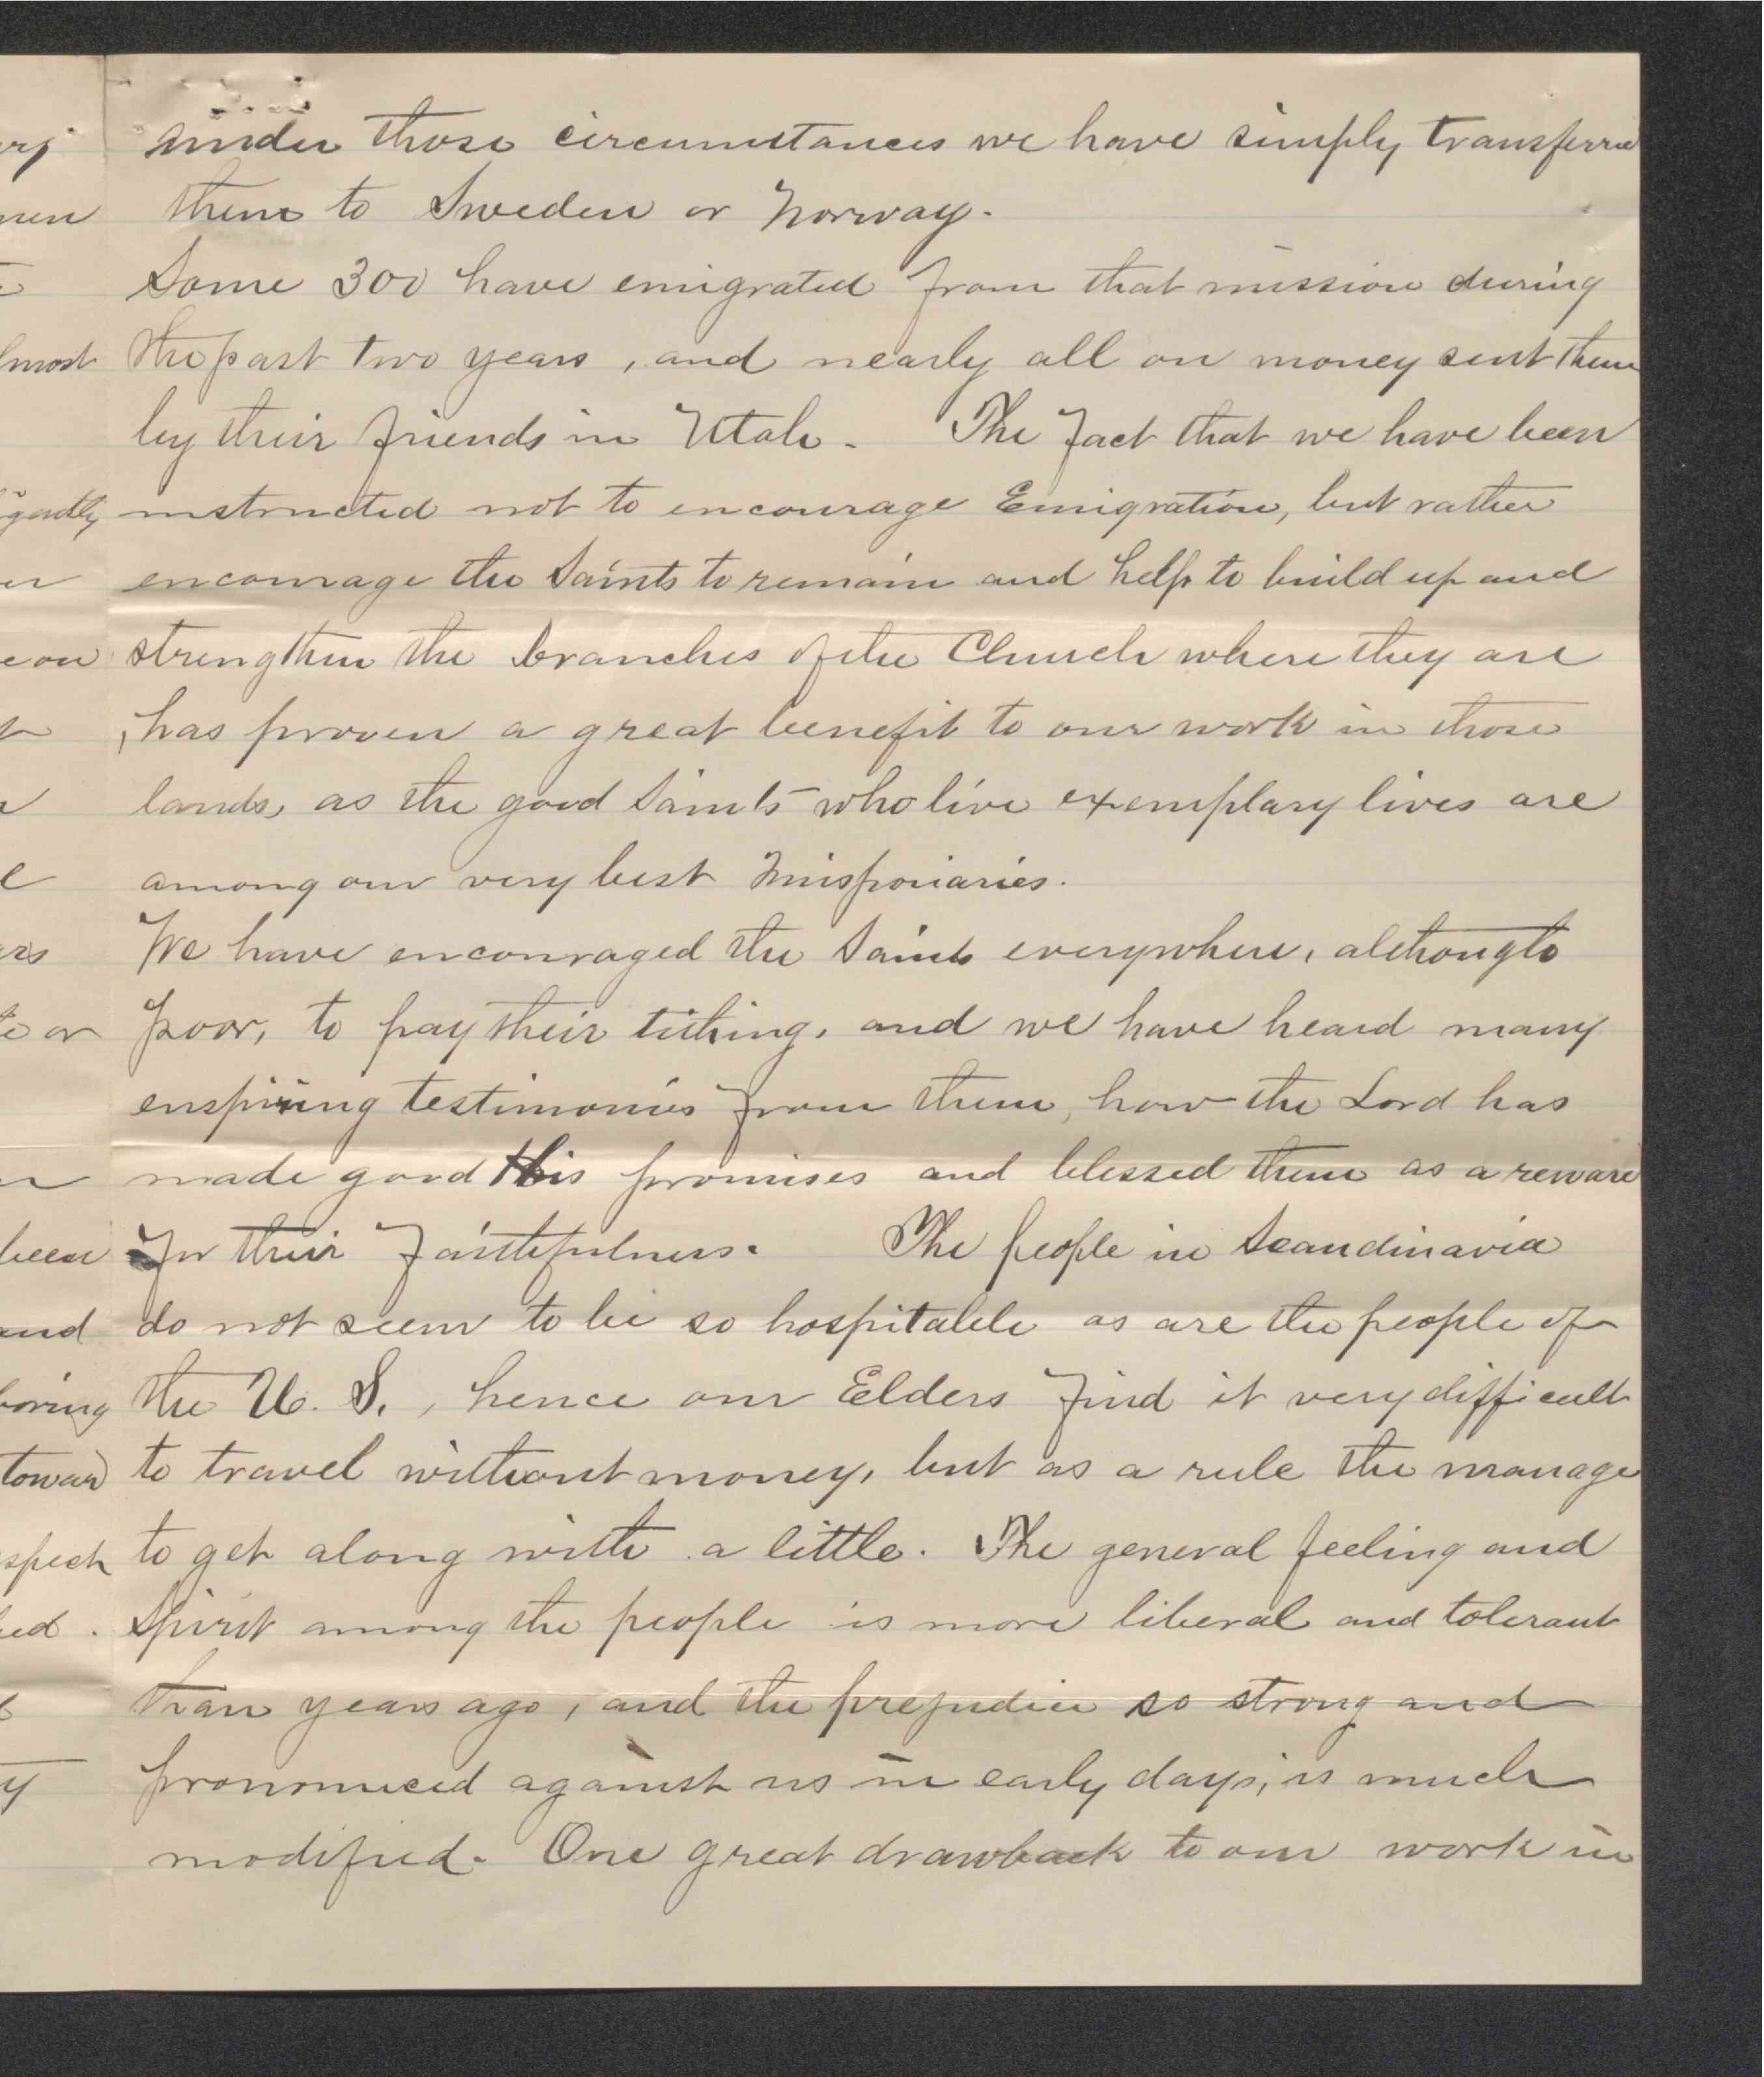 under those circumstances we have simply transferred
them to Sweden or Norway.
Some 300 have emigrated from that mission during
the past two years, and nearly all on money sent them
by their friends in Utah. The fact that we have been
instructed not to encourage Emigration, but rather
encourage the Saints to remain and help to build up and
strengthen the branches of the Church where they are
, has proven a great benefit to our work in those
lands, as the good Saints who live exemplary lives are
among our very best Missionaries.
We have encouraged the Saints everywhere, although
poor, to pay their tithing, and we have heard many
enspiring testimonies from them, how the Lord has
made good His promises and blessed them as a reward
for their faithfulness. The people in Scandinavia
do not seem to be so hospitable as are the people of
the U. S., hence our Elders find it very difficult
to travel without money, but as a rule the manage
to get along with a little. The general feeling and
Spirit among the people is more liberal and tolerant
than years ago, and the prejudice so strong and
pronounced against us in early days, is much
modified. One great drawback to our work in